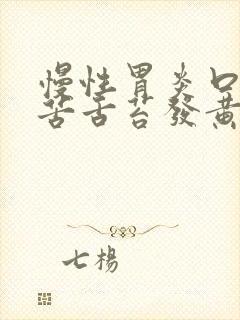 慢性胃炎口
苦舌苔發黃
七楊